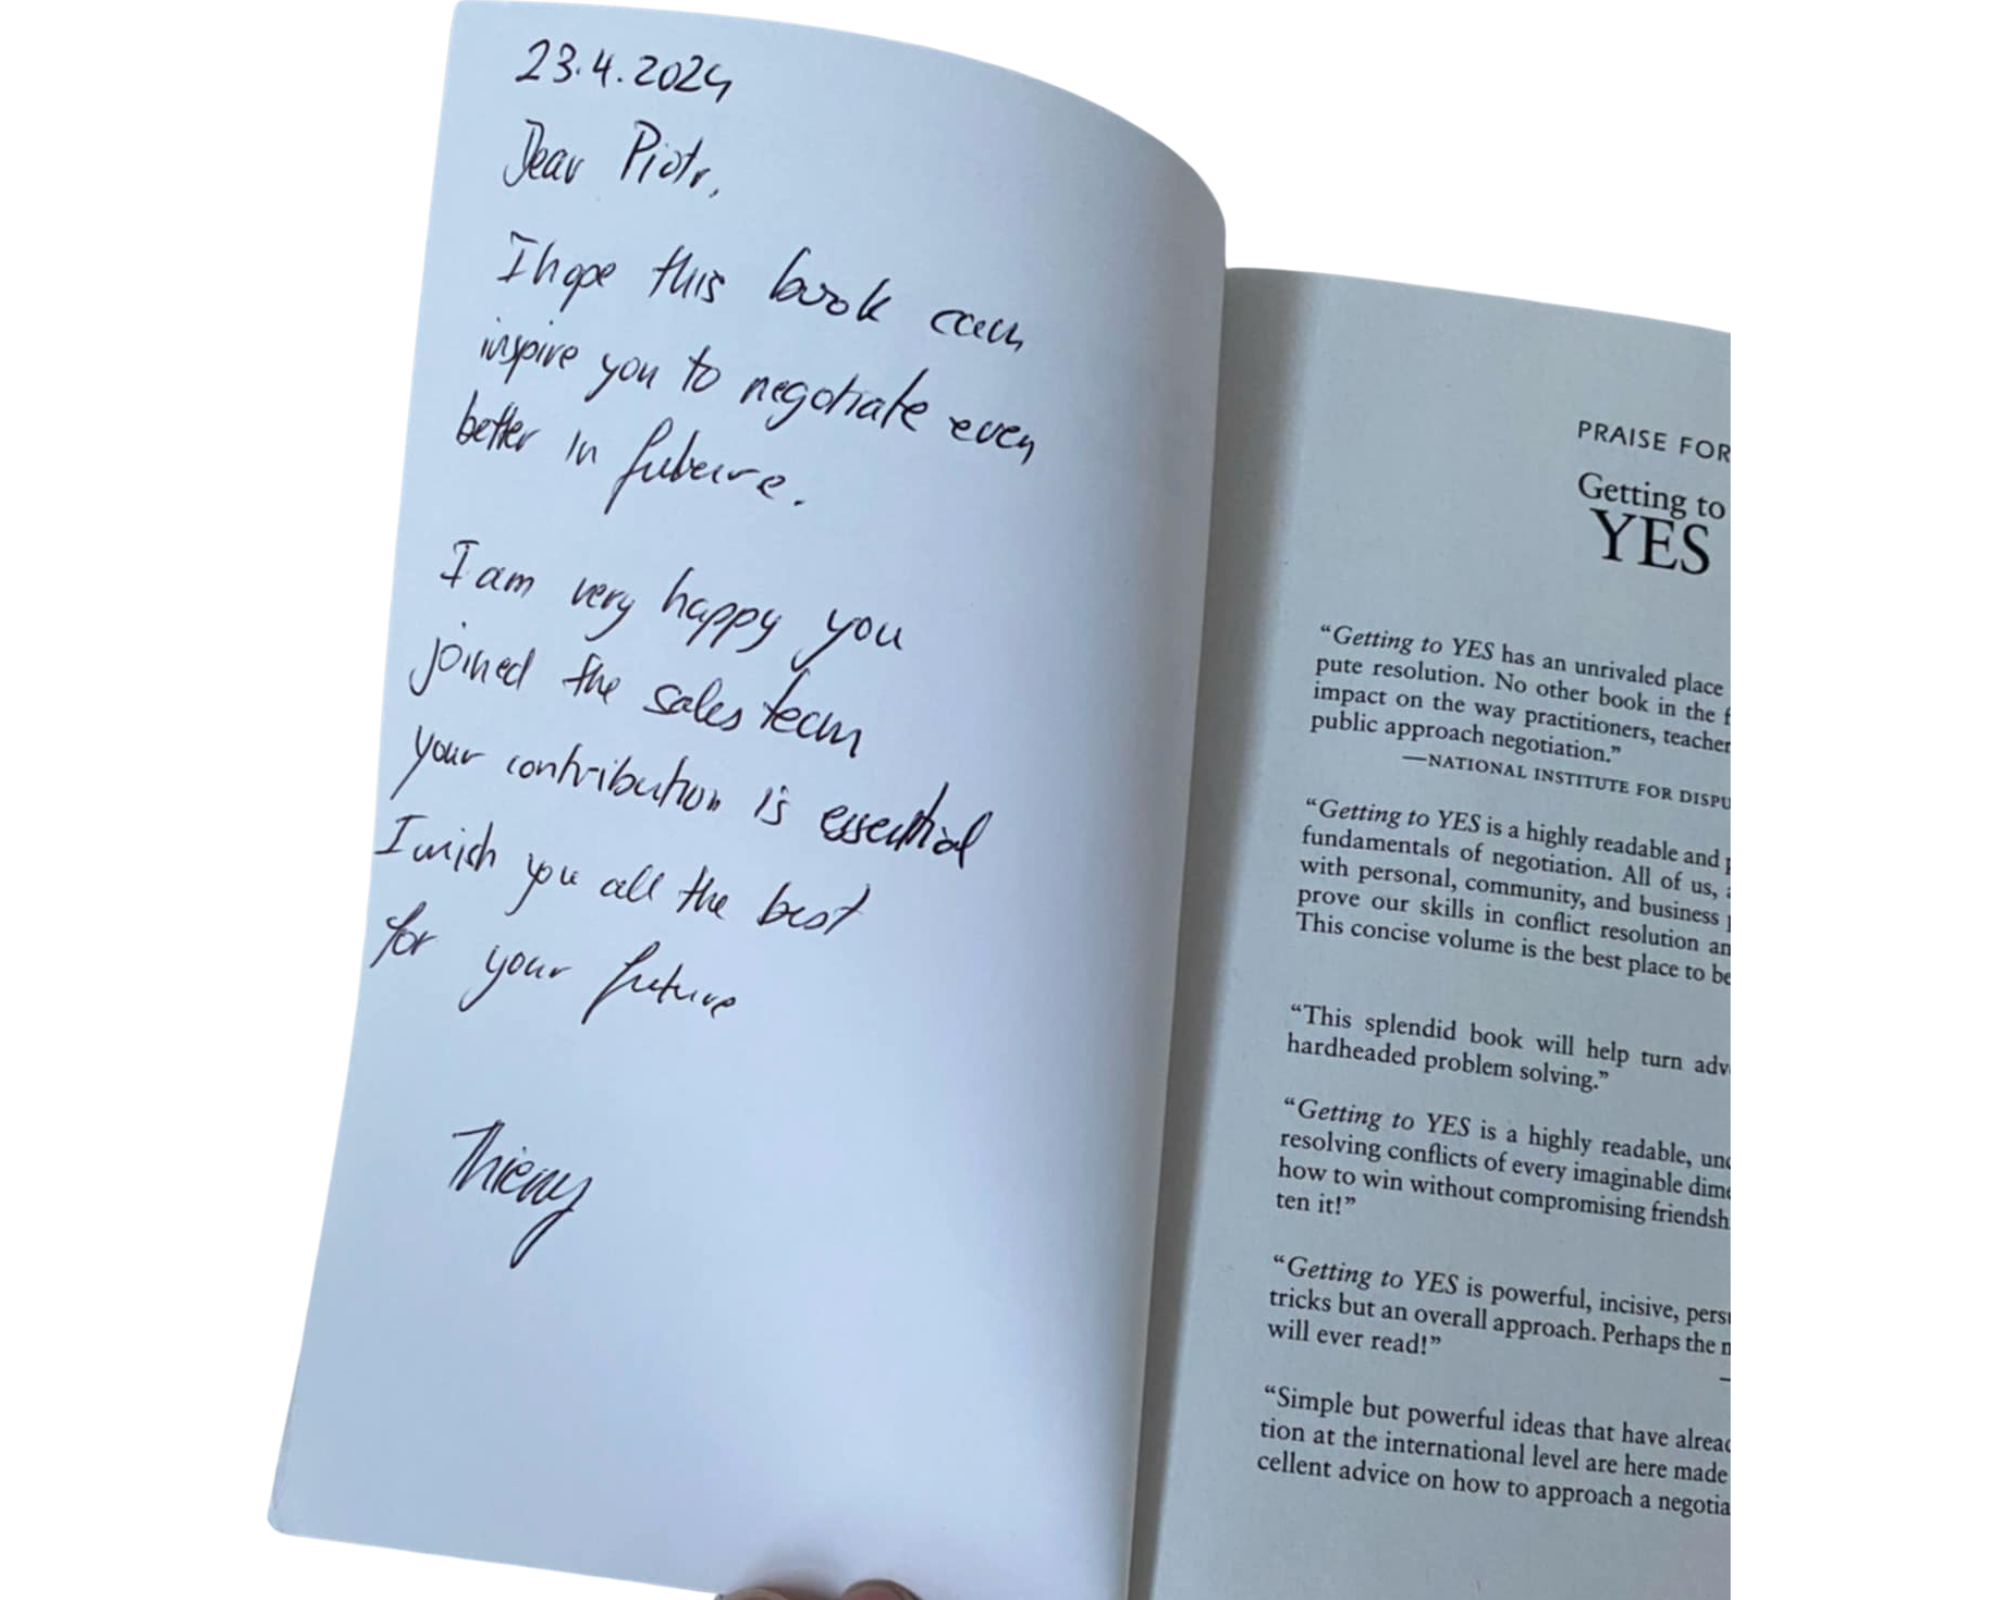 23.4.2024
Dear Piotr,
I hope this book can
inspire you to negotiate even
better in future.
I am very happy you
joined the sales team
your contribution is essential
I wish you all the best
for your future
Thierry
PRAISE FOR
Getting to
YES
“Getting to YES has an unrivaled place
pute resolution. No other book in the f
impact on the way practitioners, teacher
public approach negotiation.”
—NATIONAL INSTITUTE FOR DISPU
“Getting to YES is a highly readable and p
fundamentals of negotiation. All of us, a
with personal, community, and business p
prove our skills in conflict resolution an
This concise volume is the best place to be
“This splendid book will help turn adv
hardheaded problem solving.”
“Getting to YES is a highly readable, unc
resolving conflicts of every imaginable dime
how to win without compromising friendsh
ten it!”
“Getting to YES is powerful, incisive, persu
tricks but an overall approach. Perhaps the m
will ever read!”
“Simple but powerful ideas that have alread
tion at the international level are here made
cellent advice on how to approach a negotia